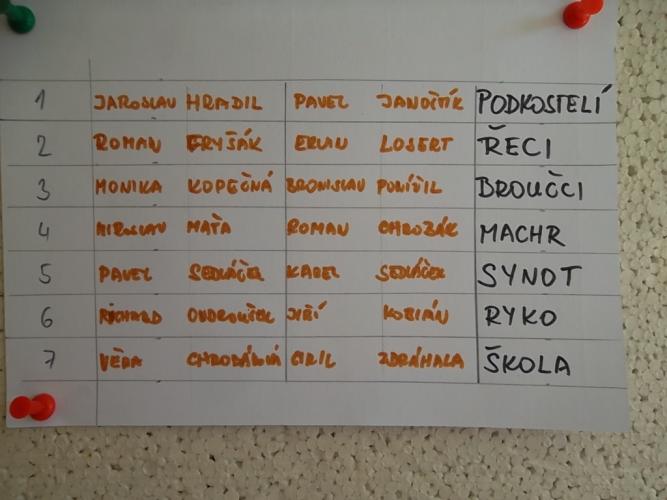 1 JAROSLAV HRADIL PAVEL JANOŠTÍK PODKOSTELÍ
2 ROMAN FRYŠÁK ERVIN LOSERT ŘECI
3 MONIKA KOPEČNÁ BRONISLAV POSPÍŠIL BROUČCI
4 MIROSLAV MAŤA ROMAN CHROZÁK MACHR
5 PAVEL SEDLÁČEK KAREL SEDLÁČEK SYNOT
6 RICHARD ONDROUŠEK JIŘÍ KOBIÁN RYKO
7 VĚRA CIRIL ZDRÁHALA ŠKOLA